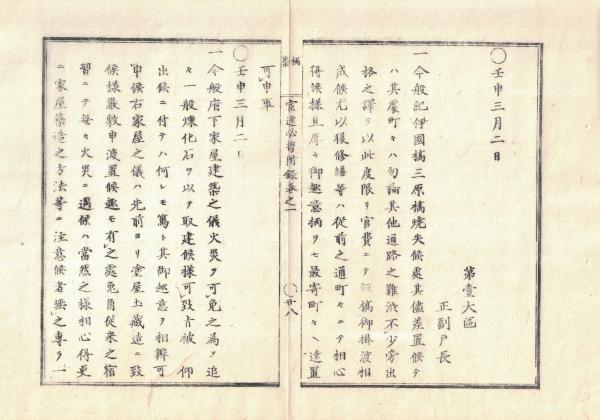 〇壬申三月二日
第壹大區
正副戸長
一今般紀伊國橋三原橋燒失候處其儘差置候テ
ハ其最寄町々ハ勿論其他通路之難渋不少旁出
格之譯ヲ以此度限リ官費ニテ假橋御掛渡相
成候尤以後修繕等ハ從前之通町々ニテ相心
得候樣且厚キ御趣意柄ヲモ最寄町々ヘ達置
官途必携附錄卷之一
〇廿八
可申事
〇壬申三月二日
一今般府下家屋建築之儀火災ヲ可免之為メ追
々一般煉化石ヲ以テ取建候樣可致旨被 仰
出候ニ付テハ何レモ篤ト其御趣意ヲ相辨可
申候右家屋之儀ハ先前ヨリ塗屋土藏造ニ致
候樣嚴敷申渡置候趣モ有之處兎角従来之宿
習ニテ每々火災ニ遇候ハ當然之樣相心得更
ニ家屋築造之方法等ニ注意候者無之專ラ一